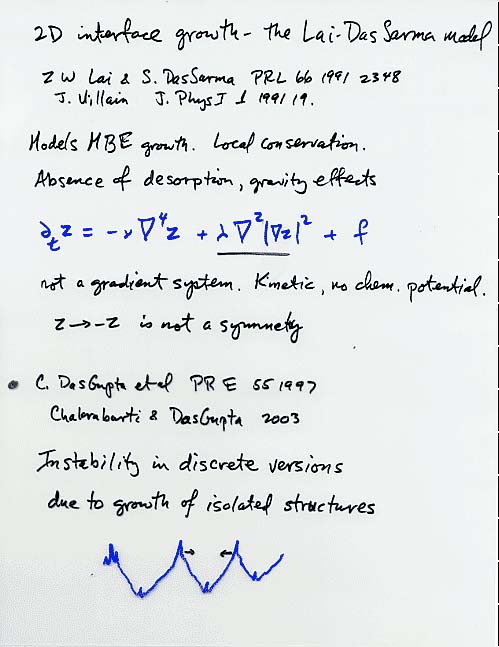 2D interface growth - the Lai-Das Sarma model
Z W Lai & S. DasSarma PRL 66 1991 2348
J. Villain J. Phys I 1 1991 19.
Models MBE growth. Local conservation.
Absence of desorption, gravity effects
∂_t z = -ν∇⁴z + λ∇²|∇z|² + f
not a gradient system. Kinetic, no chem. potential.
z → -z is not a symmetry
• C. DasGupta et al PR E 55 1997
Chakrabarti & DasGupta 2003
Instability in discrete versions
due to growth of isolated structures